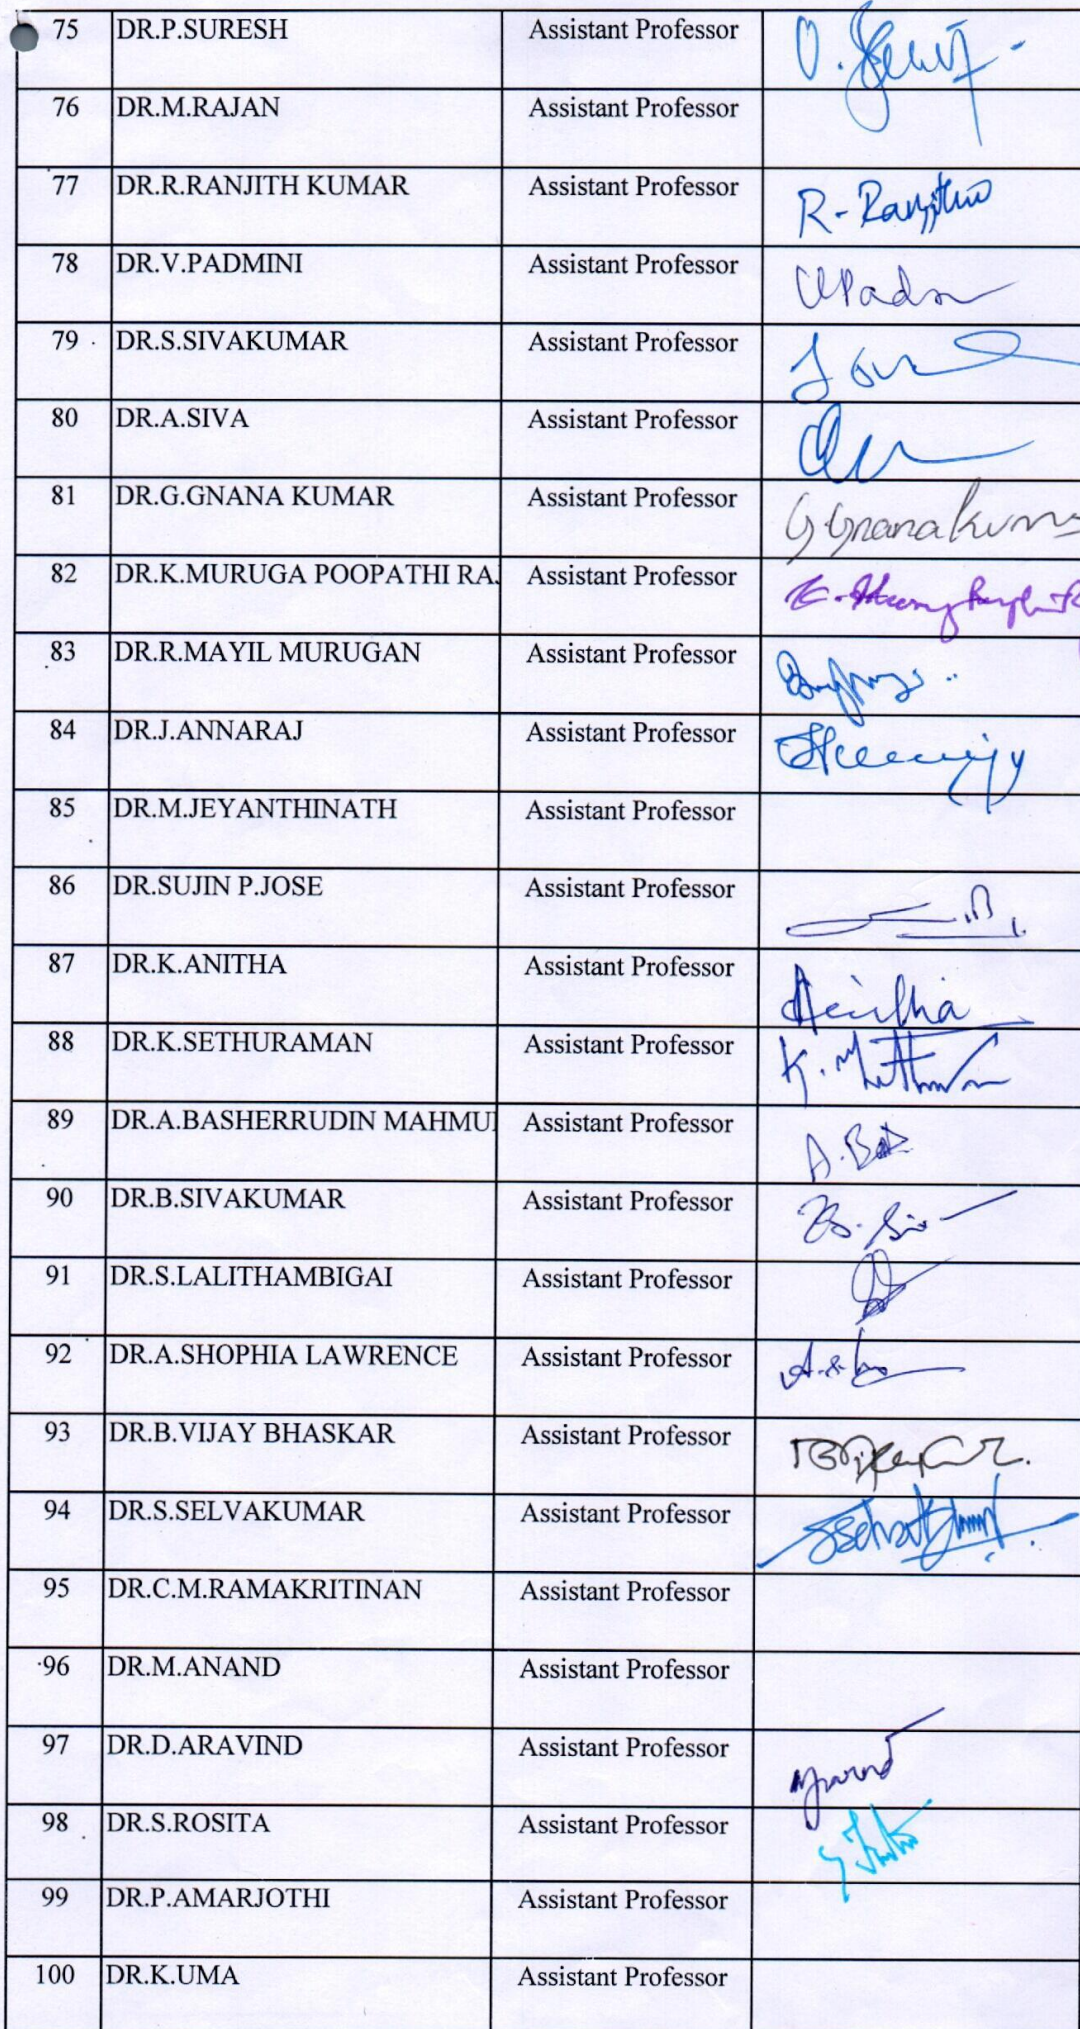 75 DR.P.SURESH Assistant Professor
76 DR.M.RAJAN Assistant Professor
77 DR.R.RANJITH KUMAR Assistant Professor R-Ranjith
78 DR.V.PADMINI Assistant Professor
79 DR.S.SIVAKUMAR Assistant Professor
80 DR.A.SIVA Assistant Professor
81 DR.G.GNANA KUMAR Assistant Professor
82 DR.K.MURUGA POOPATHI RA Assistant Professor
83 DR.R.MAYIL MURUGAN Assistant Professor
84 DR.J.ANNARAJ Assistant Professor
85 DR.M.JEYANTHINATH Assistant Professor
86 DR.SUJIN P.JOSE Assistant Professor
87 DR.K.ANITHA Assistant Professor
88 DR.K.SETHURAMAN Assistant Professor
89 DR.A.BASHERRUDIN MAHMU Assistant Professor
90 DR.B.SIVAKUMAR Assistant Professor
91 DR.S.LALITHAMBIGAI Assistant Professor
92 DR.A.SHOPHIA LAWRENCE Assistant Professor
93 DR.B.VIJAY BHASKAR Assistant Professor
94 DR.S.SELVAKUMAR Assistant Professor
95 DR.C.M.RAMAKRITINAN Assistant Professor
96 DR.M.ANAND Assistant Professor
97 DR.D.ARAVIND Assistant Professor
98 DR.S.ROSITA Assistant Professor
99 DR.P.AMARJOTHI Assistant Professor
100 DR.K.UMA Assistant Professor